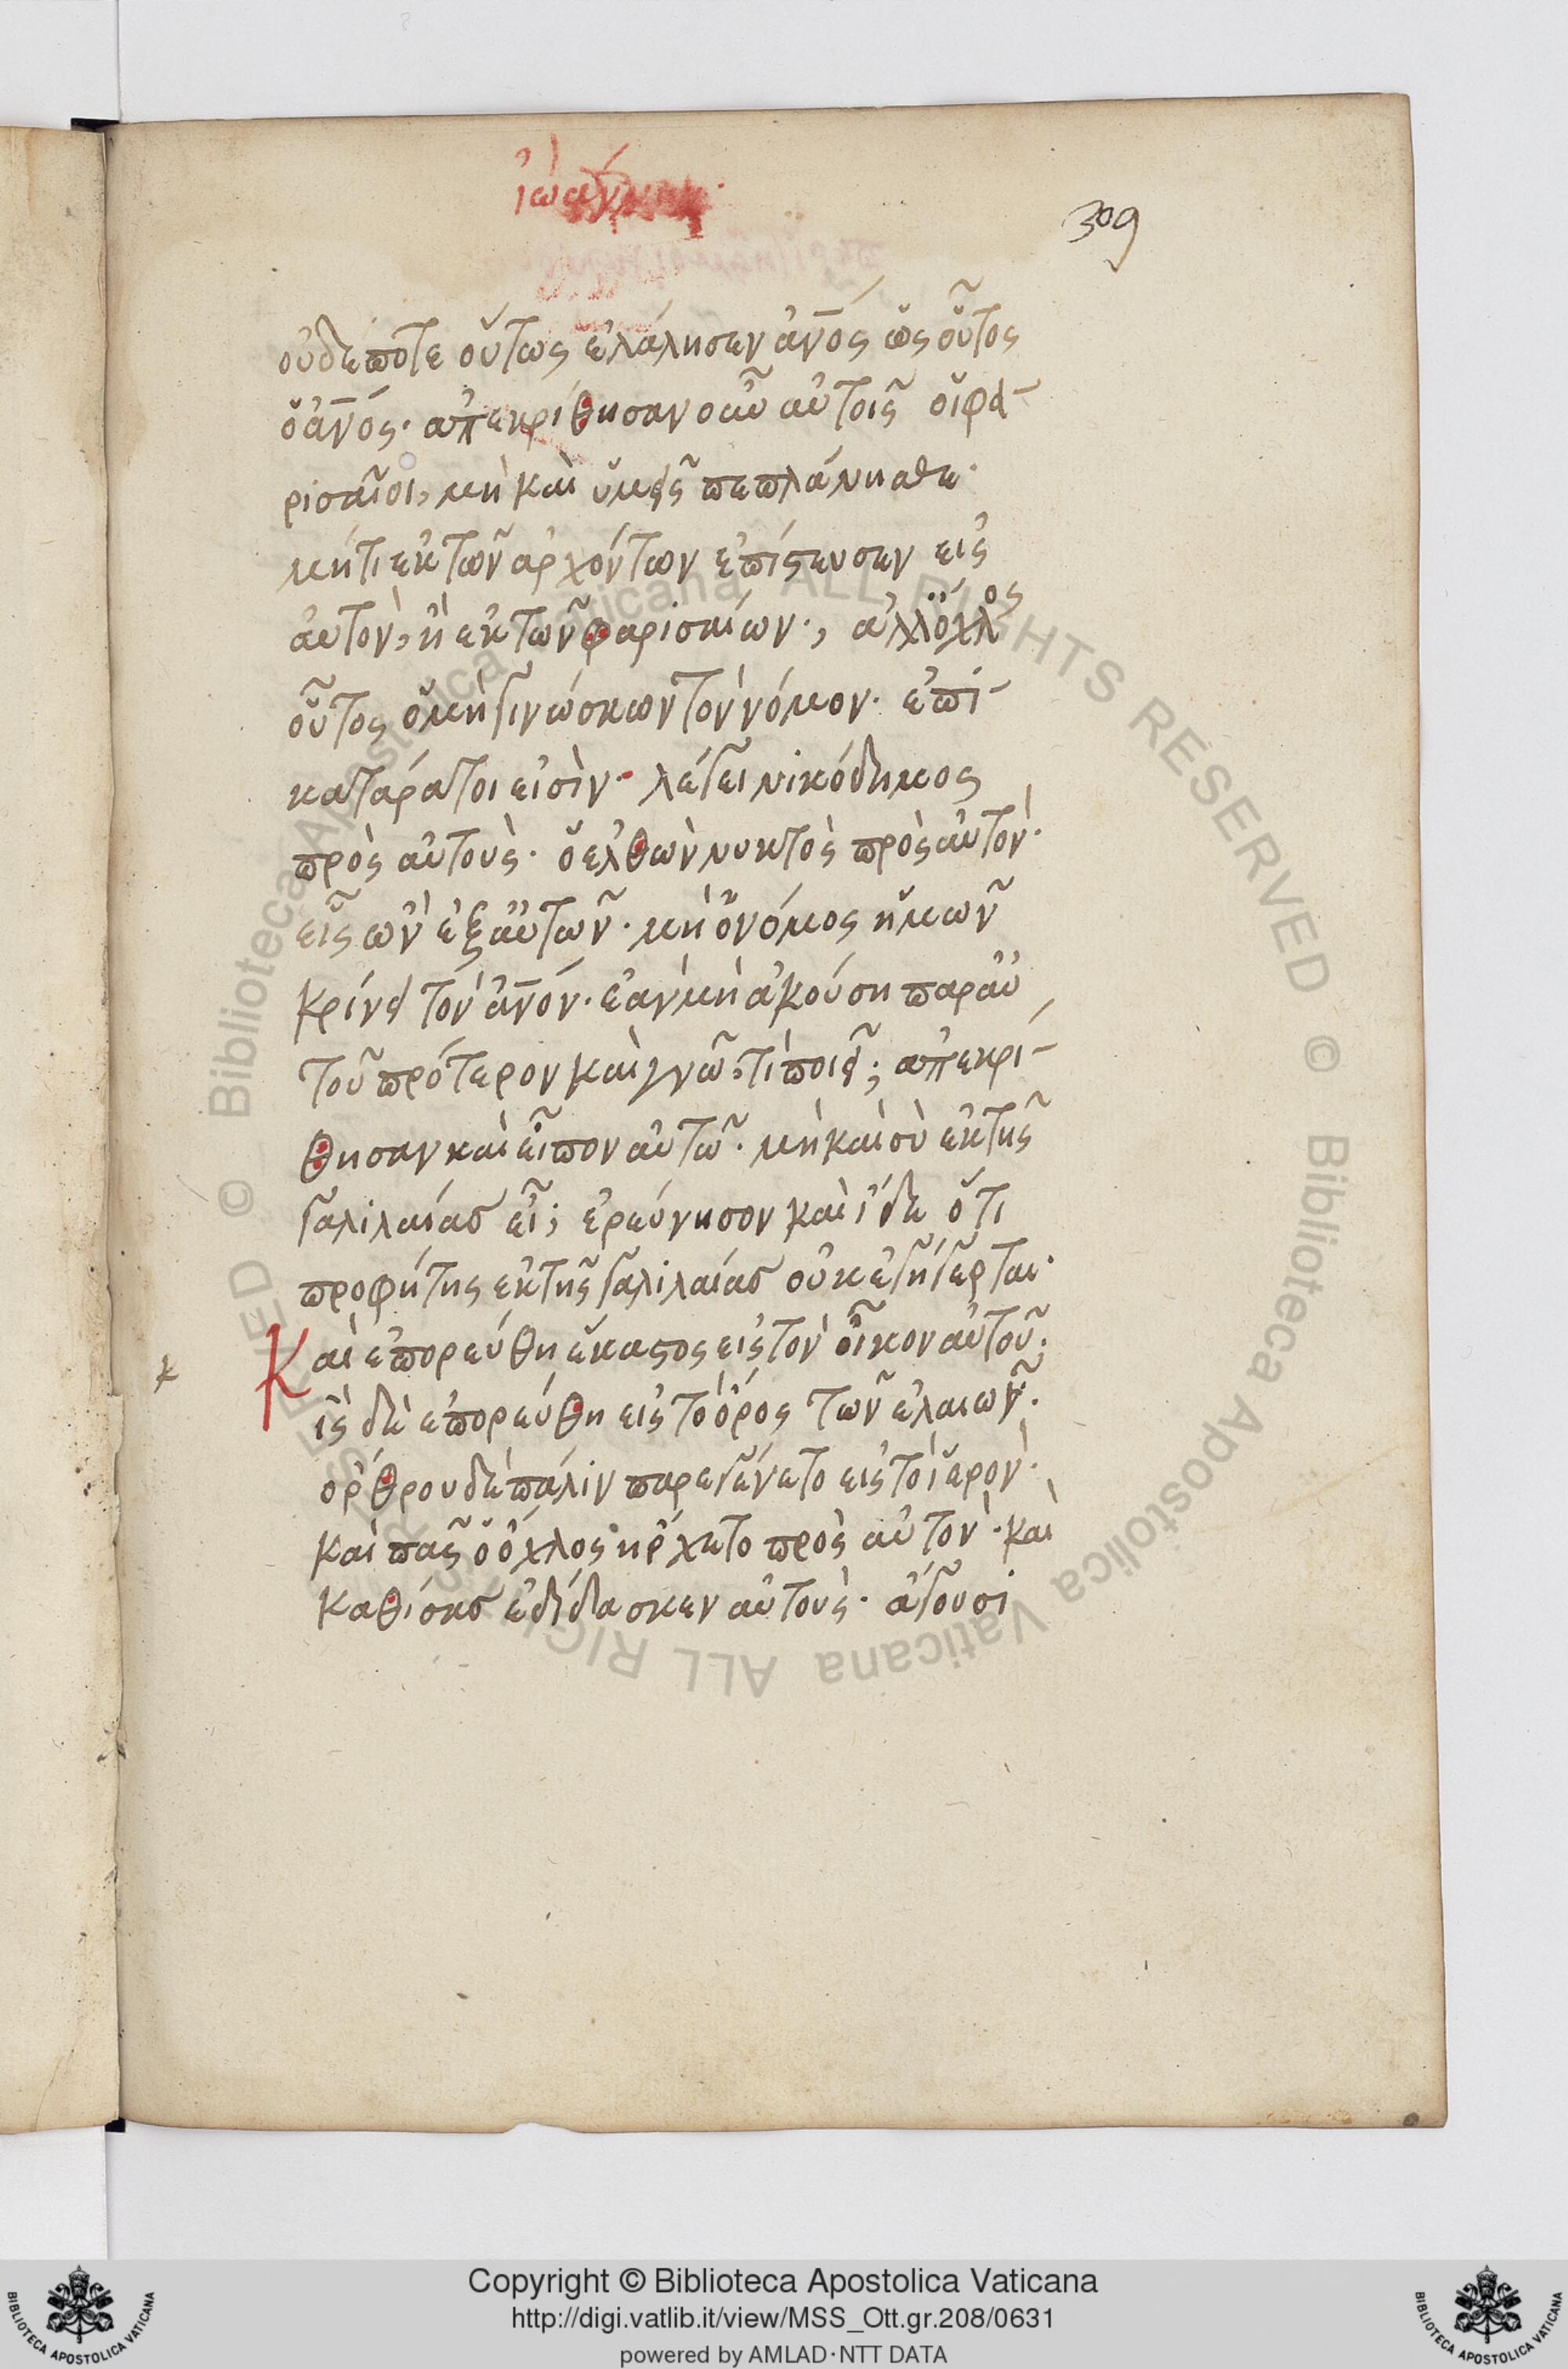 ἰωάνν
309
οὐδέποτε οὕτως ἐλάλησεν ἀνος ὡς οὗτος
ὁ ἀνος· ἀπεκρίθησαν οὖν αὐτοῖς οἱ φα-
ρισαῖοι, μὴ καὶ ὑμεῖς πεπλάνησθε·
μήτι ἐκ τῶν ἀρχόντων ἐπίστευσεν εἰς
αὐτὸν, ἢ ἐκ τῶν φαρισαίων·, ἀλλ ὁ ὄχλος
οὗτος ὁ μὴ γινώσκων τὸν νόμον· ἐπι-
κατάρατοι εἰσὶν· λέγει νικόδημος
πρὸς αὐτοὺς· ὁ ἐλθὼν νυκτὸς πρὸς αὐτὸν·
εἷς ὢν ἐξ αὐτῶν· μὴ ὁ νόμος ἡμῶν
κρίνει τὸν ἀνον· ἐὰν μὴ ἀκούση παρ αὐ
τοῦ πρότερον καὶ γνῶ, τί ποιεῖ; ἀπεκρί-
θησαν καὶ εἶπον αὐτῶ· μὴ καὶ σὺ ἐκ τῆς
γαλιλαίας εἶ; ἐρεύνησον καὶ ἴδε ὅτι
προφήτης ἐκ τῆς γαλιλαίας οὐκ ἐγήγερται·
Καὶ ἐπορεύθη ἕκαστος εἰς τὸν οἶκον αὐτοῦ·
ις δὲ ἐπορεύθη εἰς τὸ ὄρος τῶν ἐλαιῶν·
ὄρθρου δὲ πάλιν παρεγένετο εἰς τὸ ἱερὸν·
καὶ πᾶς ὁ ὄχλος ἤρχετο πρὸς αὐτὸν· καὶ
καθίσας ἐδίδασκεν αὐτοὺς· ἄγουσι
© Biblioteca Apostolica Vaticana ALL RIGHTS RESERVED © Biblioteca Apostolica Vaticana ALL RIGHTS RESERVED
Copyright © Biblioteca Apostolica Vaticana
http://digi.vatlib.it/view/MSS_Ott.gr.208/0631
powered by AMLAD·NTT DATA
BIBLIOTECA APOSTOLICA VATICANA
BIBLIOTECA APOSTOLICA VATICANA